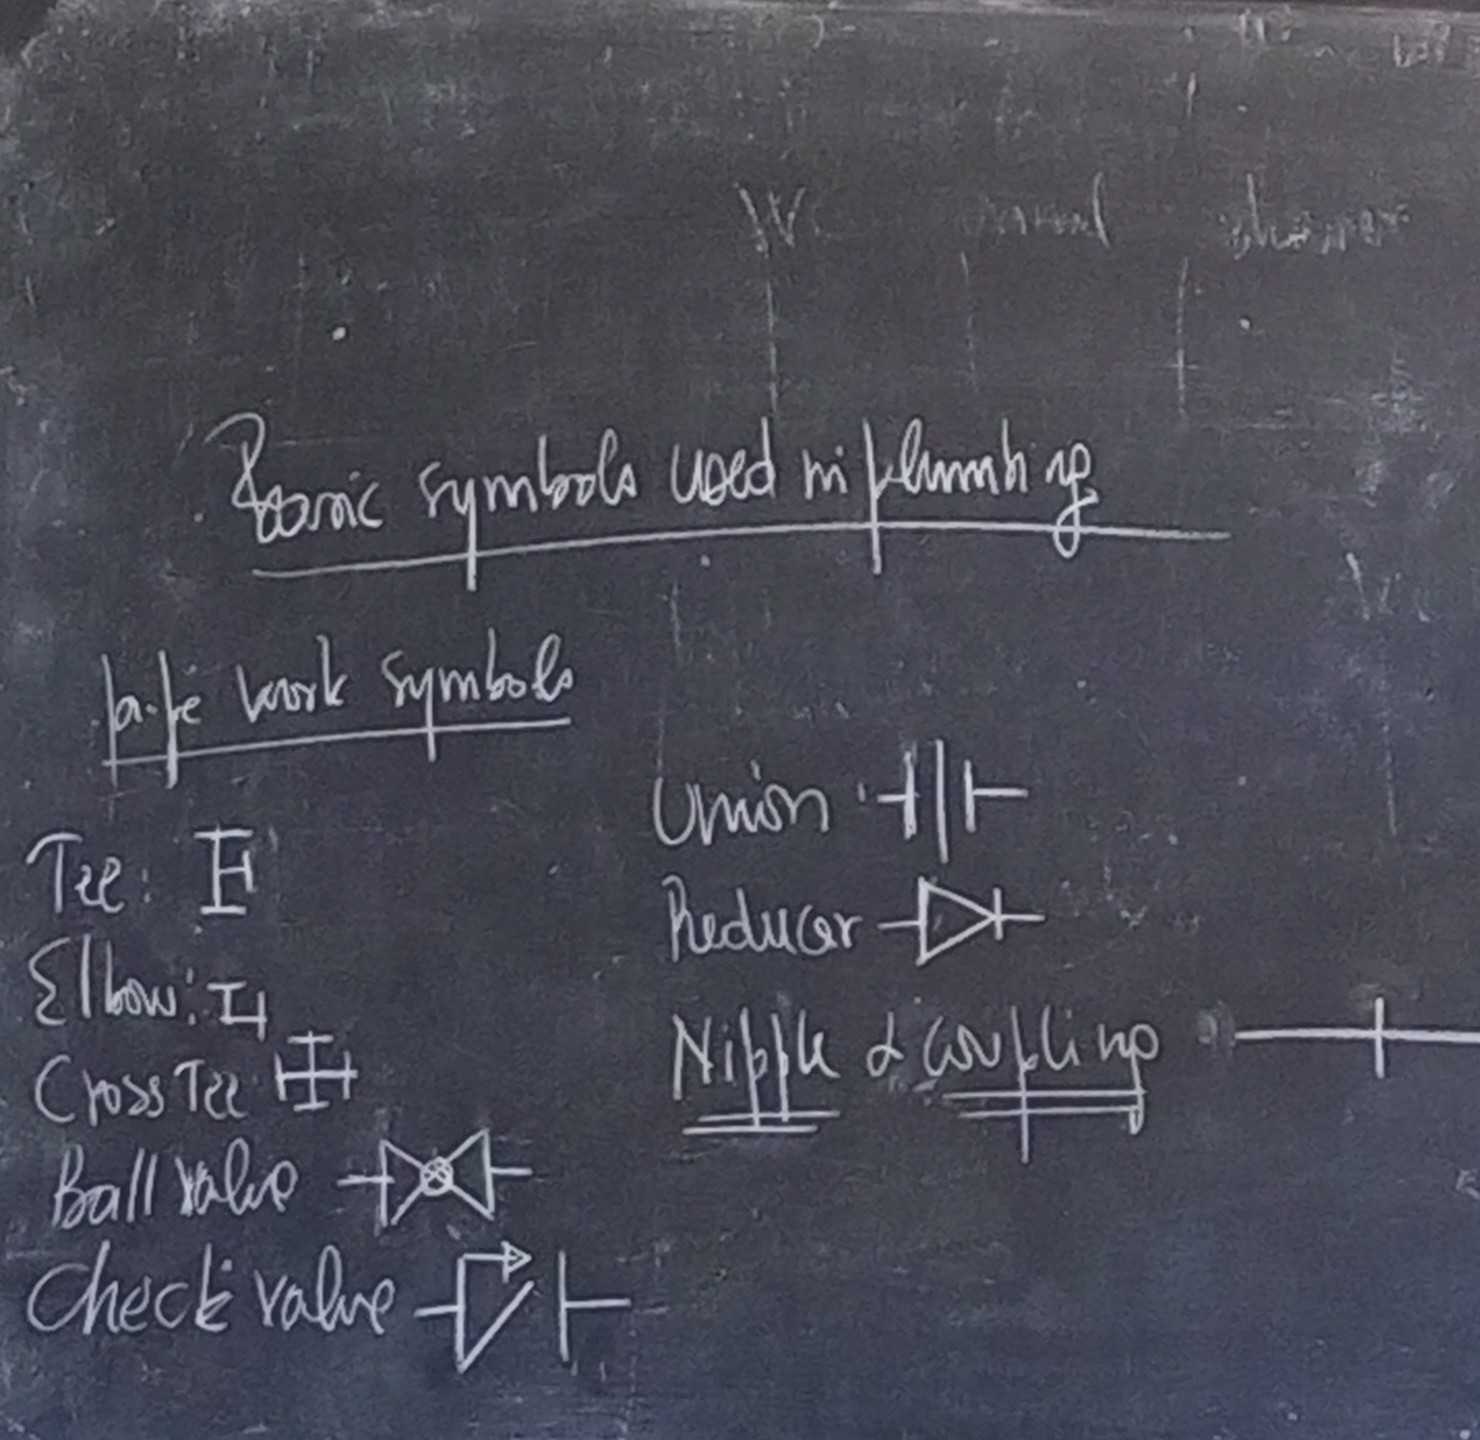 Basic symbols used in plumbing
pipe work symbols
Tee:
Elbow:
Cross Tee:
Ball valve
Check valve
Union:
Reducer
Nipple & coupling
WC
shower